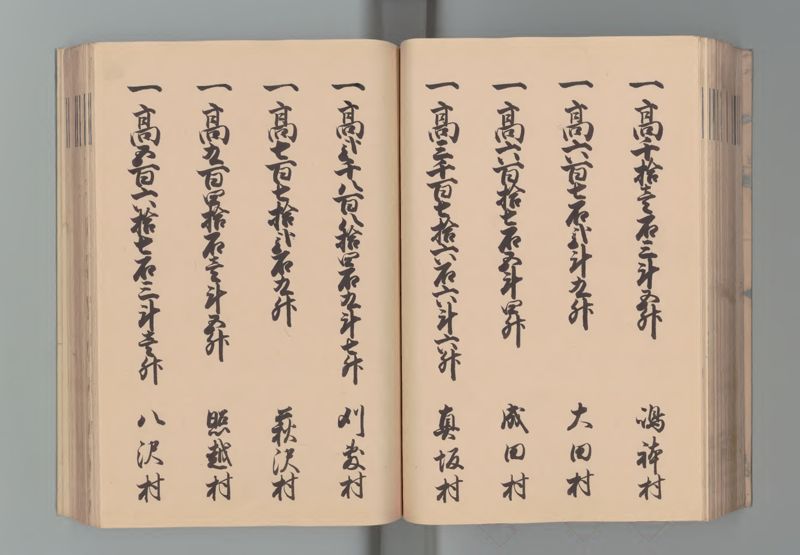 一高千拾壱石三斗五升 嶋躰村
一高六百七石弐斗九升 大田村
一高六百拾七石五斗四升 成田村
一高三千百七拾六石六斗六升 真坂村
一高弐千八百八拾四石九斗七升 刈敷村
一高七百七拾弐石九升 萩沢村
一高九百四拾石壱斗五升 照越村
一高五百六拾七石三斗壱升 八沢村